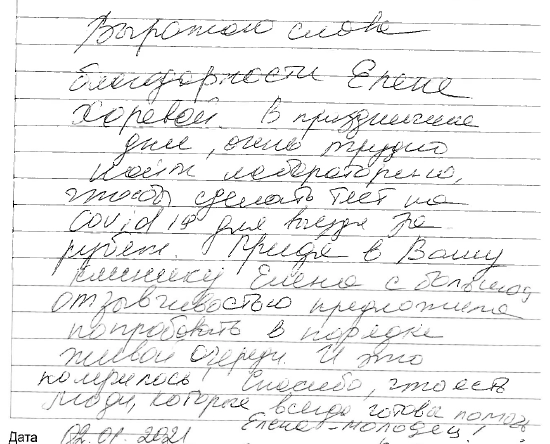 Выражаю слова
благодарности Елене
Хоревой. В праздничные
дни, очень трудно
найти лабораторию,
чтобы сделать тест на
Covid 19 для выезда за
рубеж. Придя в Вашу
клинику Елена с большой
отзывчивостью предложила
попробовать в порядке
живой очереди. И это
получилось! Спасибо, что есть
люди, которые всегда готовы помочь
Елена - молодец!
Дата 02.01.2021